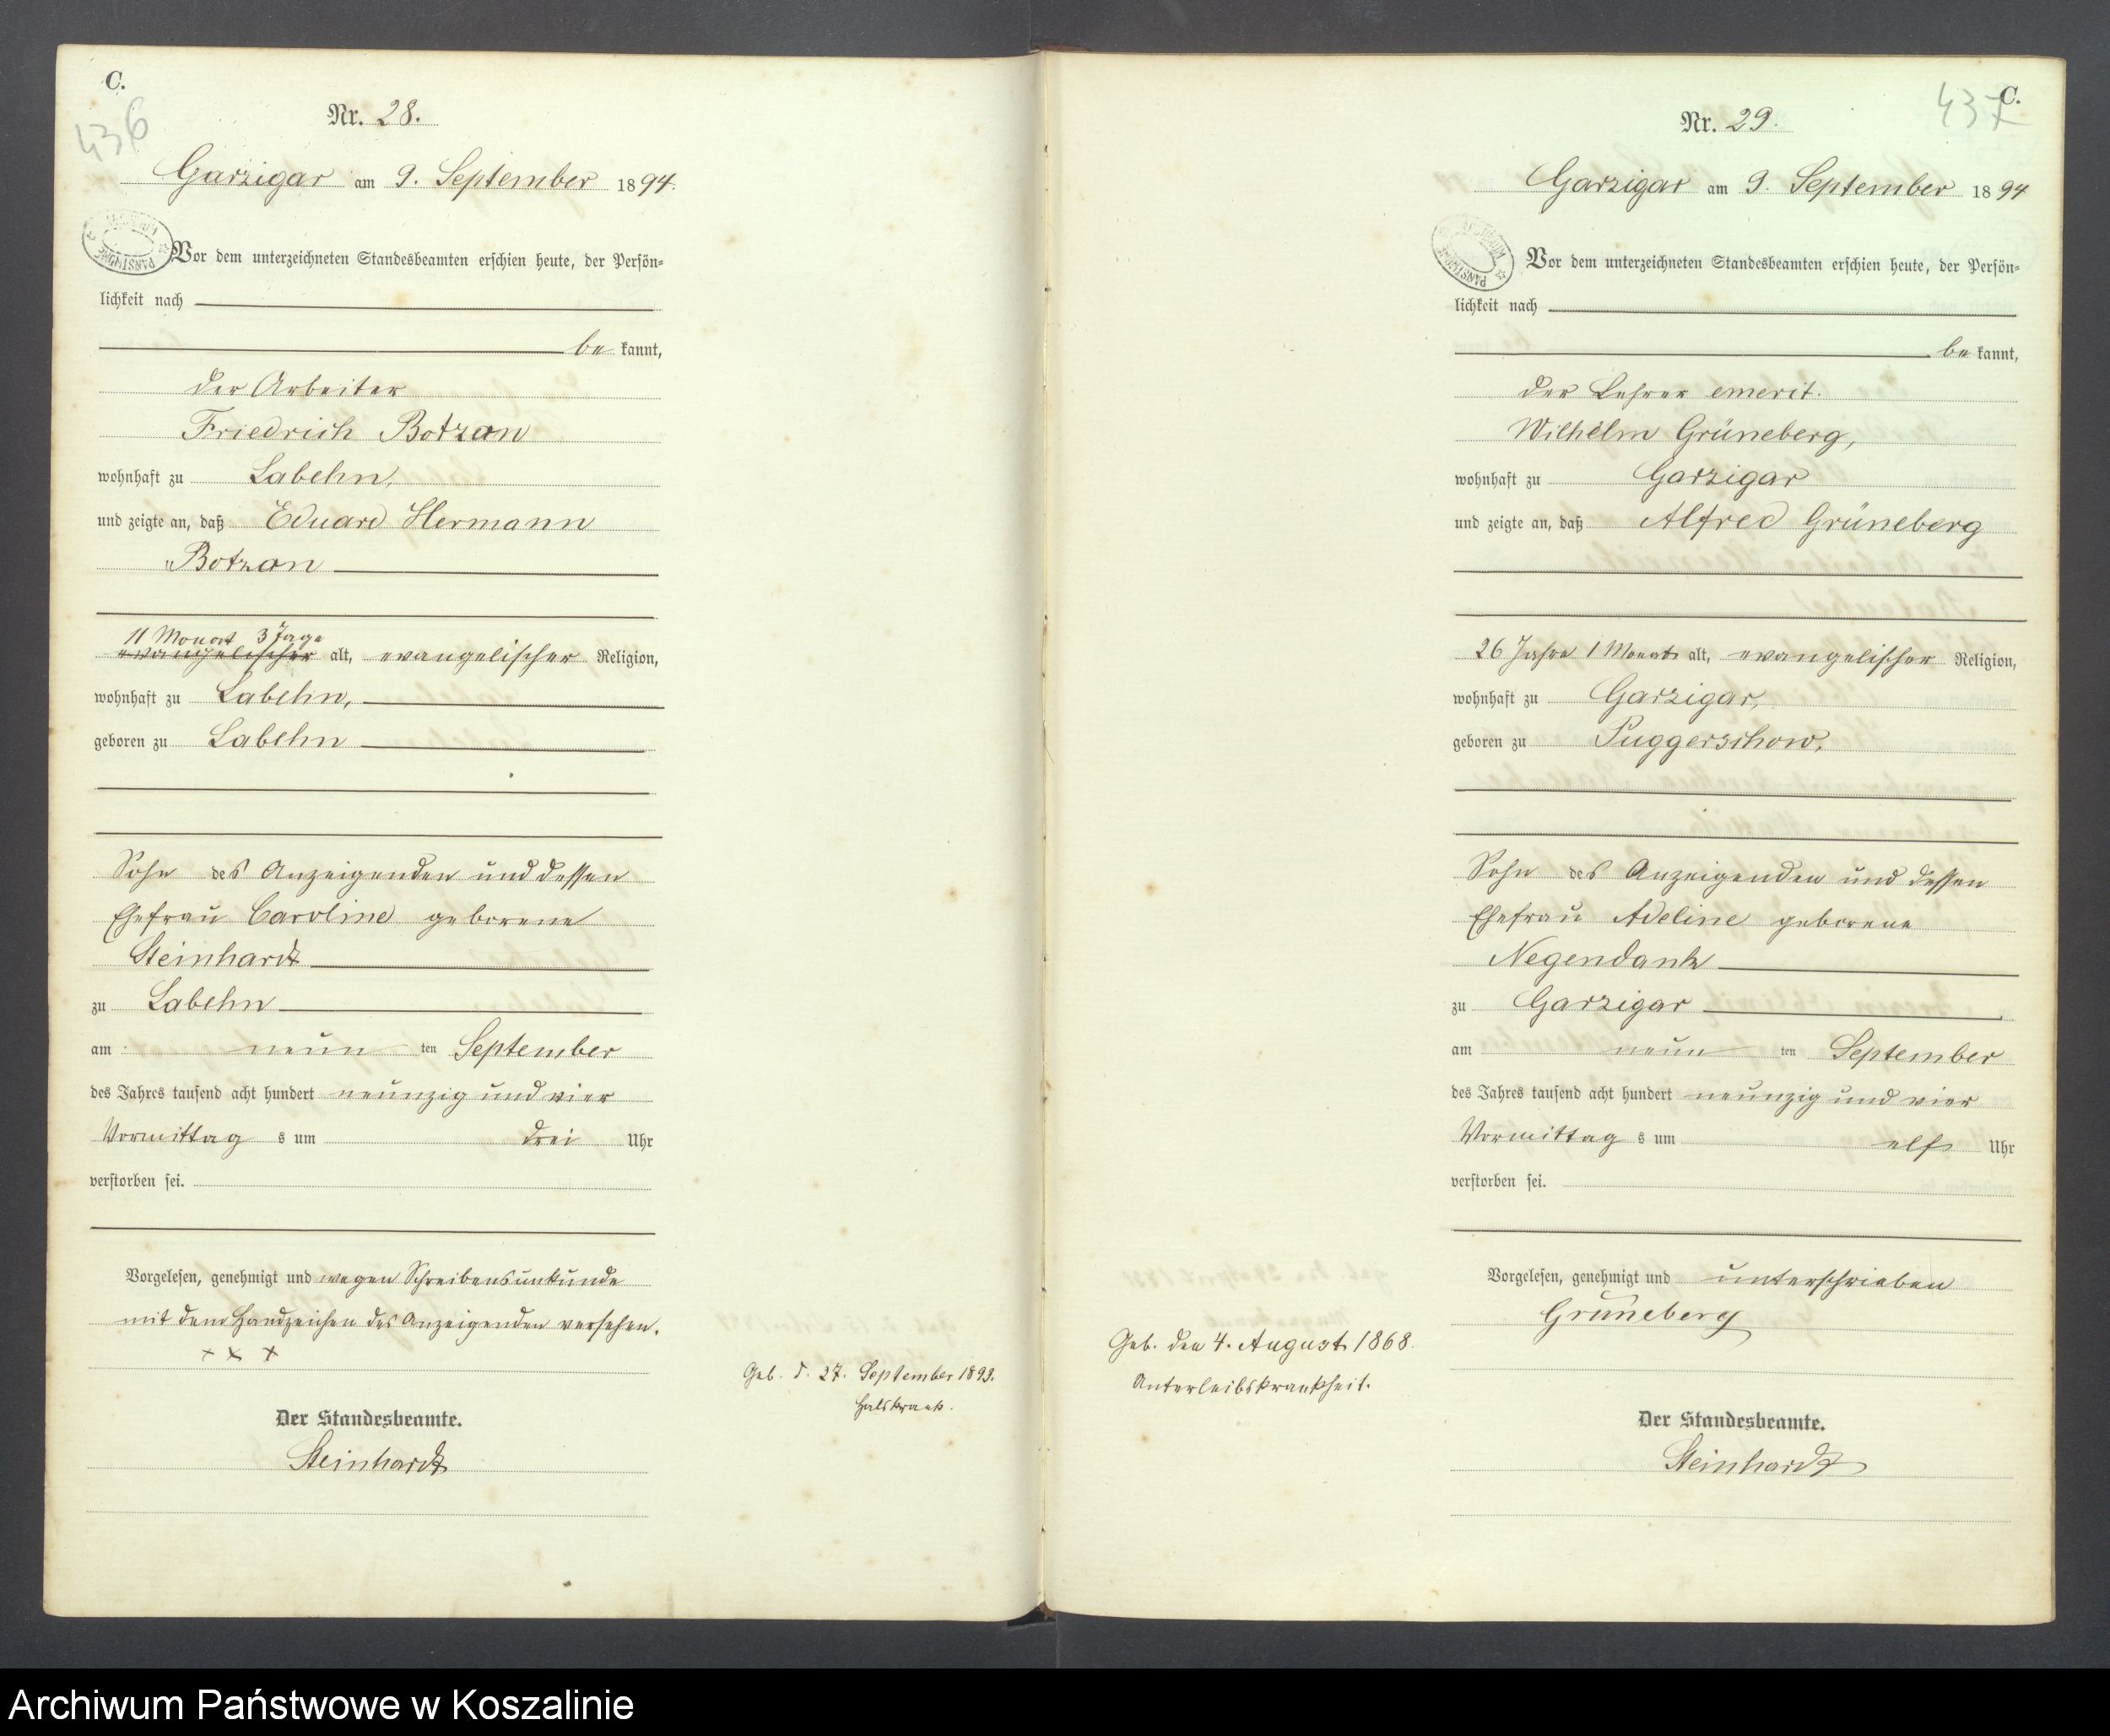 C.
436
Nr. 28.
Garzigar am 9. September 1894.
Vor dem unterzeichneten Standesbeamten erschien heute, der Persön=
lichkeit nach
be kannt,
der Arbeiter
Friedrich Botzan
wohnhaft zu Labehn,
und zeigte an, daß Eduard Hermann
Botzan
11 Monat 3 Tage
evangelischer alt, evangelischer Religion,
wohnhaft zu Labehn,
geboren zu Labehn
Sohn des Anzeigenden und dessen
Ehefrau Caroline geborene
Steinhardt
zu Labehn
am neun ten September
des Jahres tausend acht hundert neunzig und vier
Vormittag s um drei Uhr
verstorben sei.
Vorgelesen, genehmigt und wegen Schreibensunkunde
mit dem Handzeichen des Anzeigenden versehen.
+ + +
Geb. d. 27. September 1893.
Halskrank.
Der Standesbeamte.
Steinhardt
437
C.
Nr. 29.
Garzigar am 9. September 1894
Vor dem unterzeichneten Standesbeamten erschien heute, der Persön=
lichkeit nach
be kannt,
der Lehrer emerit.
Wilhelm Grüneberg,
wohnhaft zu Garzigar
und zeigte an, daß Alfred Grüneberg
26 Jahre 1 Monat alt, evangelischer Religion,
wohnhaft zu Garzigar,
geboren zu Puggerschow,
Sohn des Anzeigenden und dessen
Ehefrau Adeline geborene
Negendank
zu Garzigar
am neun ten September
des Jahres tausend acht hundert neunzig und vier
Vormittag s um elf Uhr
verstorben sei.
Vorgelesen, genehmigt und unterschrieben
Grüneberg
Geb. den 4. August 1868.
Unterleibskrankheit.
Der Standesbeamte.
Steinhardt
Archiwum Państwowe w Koszalinie